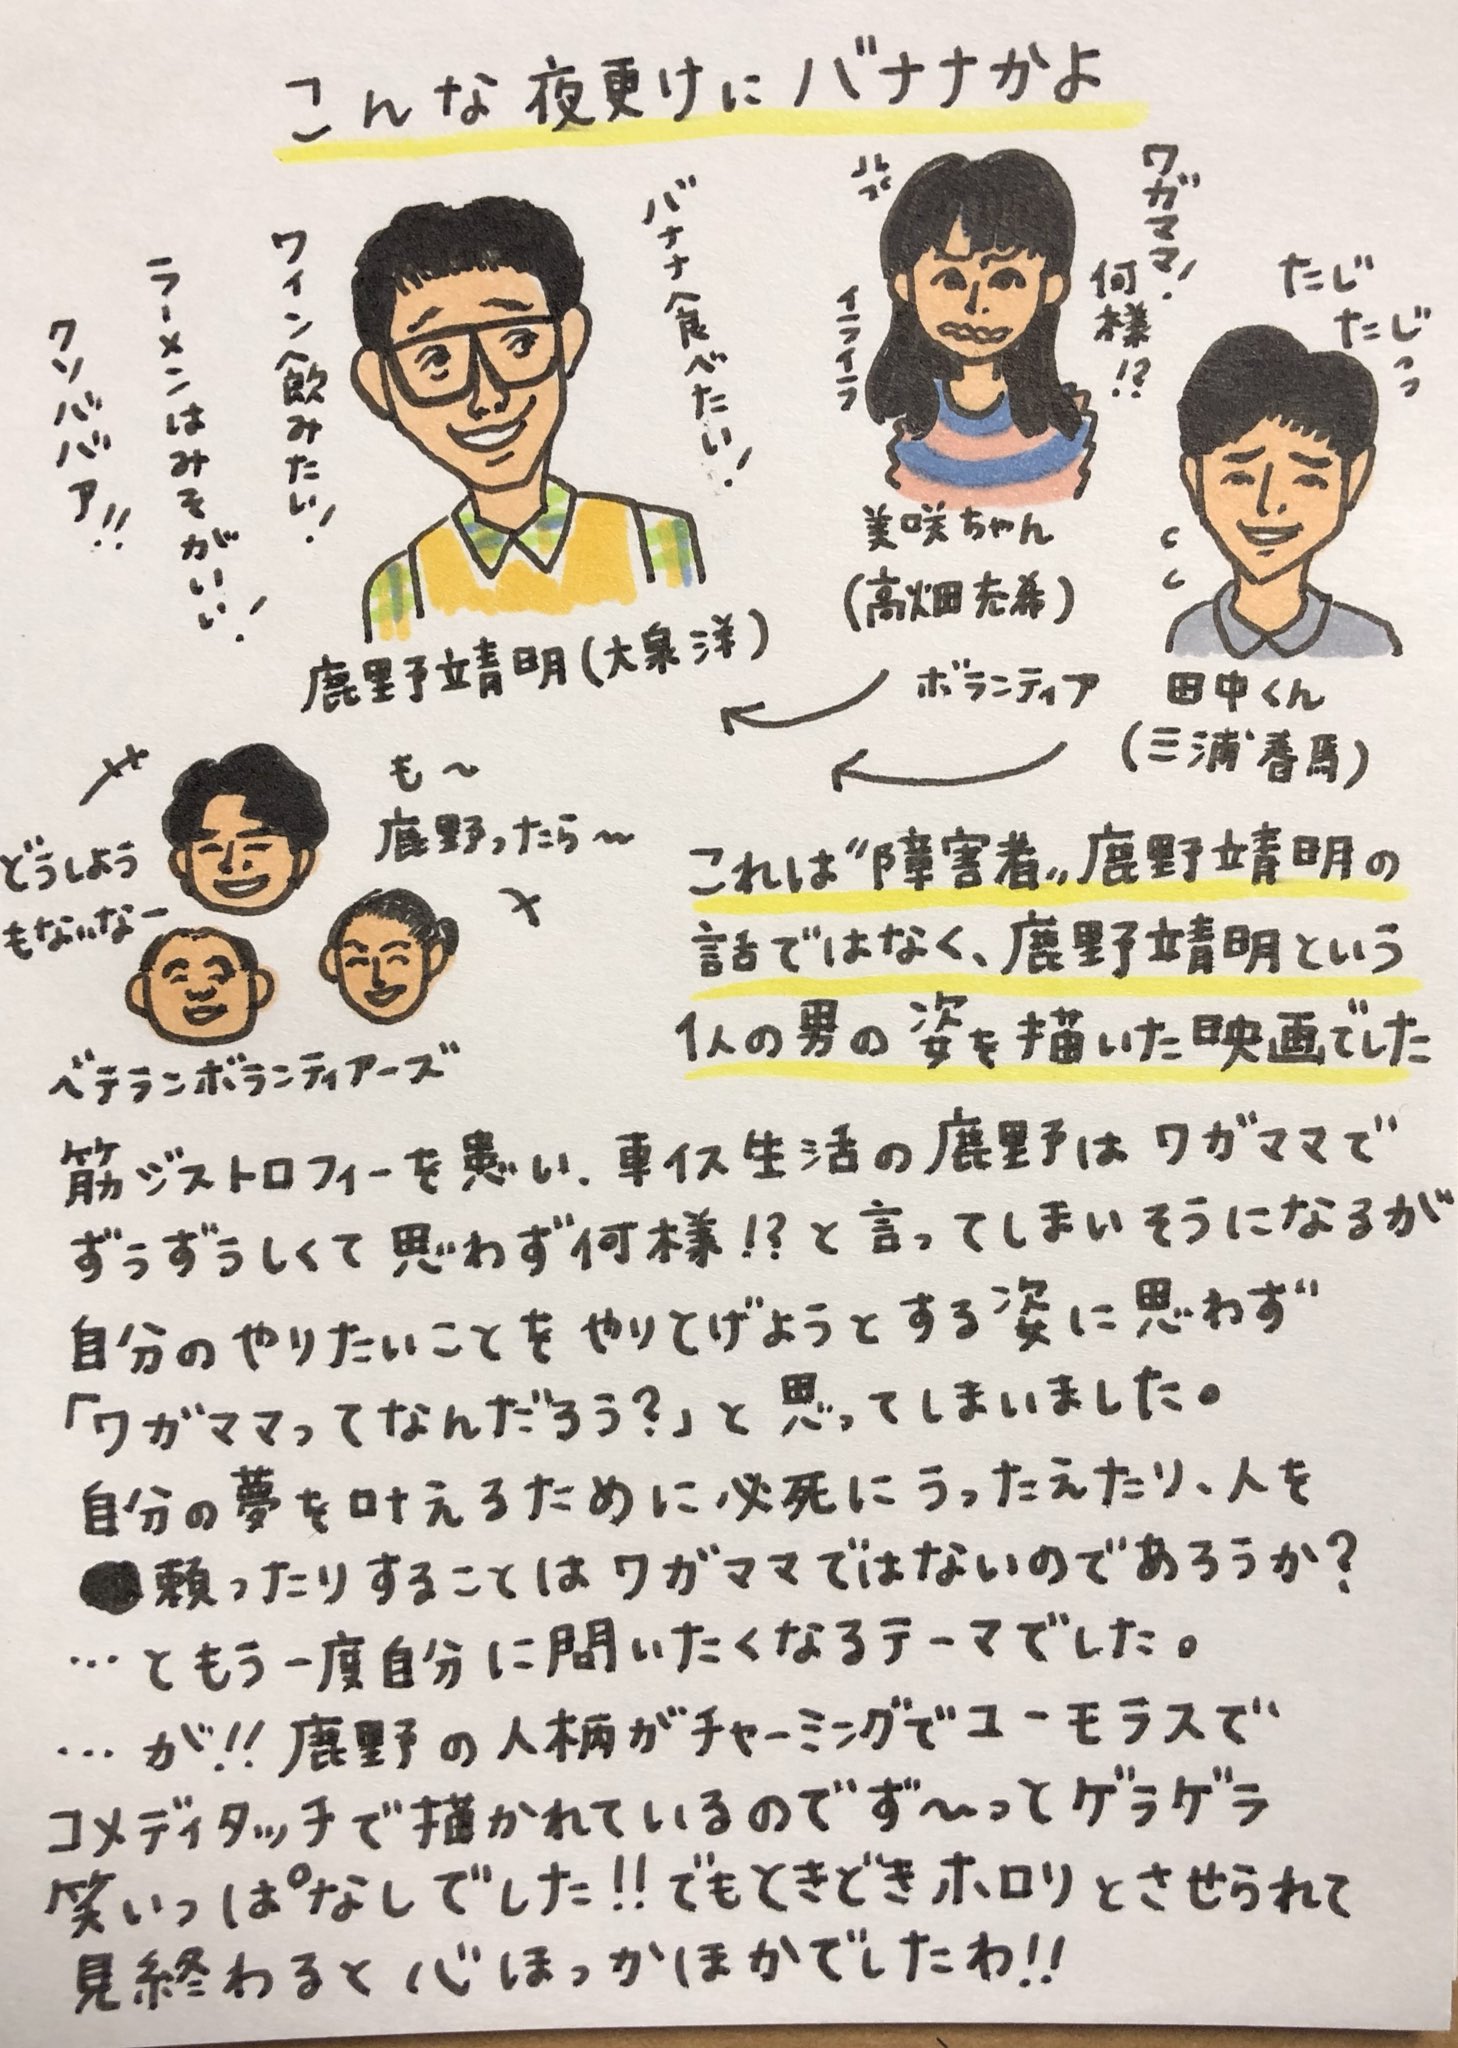 こんな夜更けにバナナかよ
バナナ食べたい!
ワイン飲みたい!
ラーメンはみそがいい!
クソババア!!
鹿野靖明(大泉洋)
ワガママ!
何様!?
イライラ
美咲ちゃん
(高畑充希)
たじ
たじっっ
田中くん
(三浦春馬)
ボランティア
も〜
鹿野ったら〜
どうしよう
もないなー
ベテランボランティアーズ
これは“障害者”鹿野靖明の
話ではなく、鹿野靖明という
1人の男の姿を描いた映画でした
筋ジストロフィーを患い、車イス生活の鹿野はワガママで
ずうずうしくて思わず何様!?と言ってしまいそうになるが
自分のやりたいことをやりとげようとする姿に思わず
「ワガママってなんだろう?」と思ってしまいました。
自分の夢を叶えるために必死にうったえたり、人を
頼ったりすることはワガママではないのであろうか?
…ともう一度自分に問いたくなるテーマでした。
…が!!鹿野の人柄がチャーミングでユーモラスで
コメディタッチで描かれているのでず〜っとゲラゲラ
笑いっぱなしでした!!でもときどきホロリとさせられて
見終わると心ほっかほかでしたわ!!